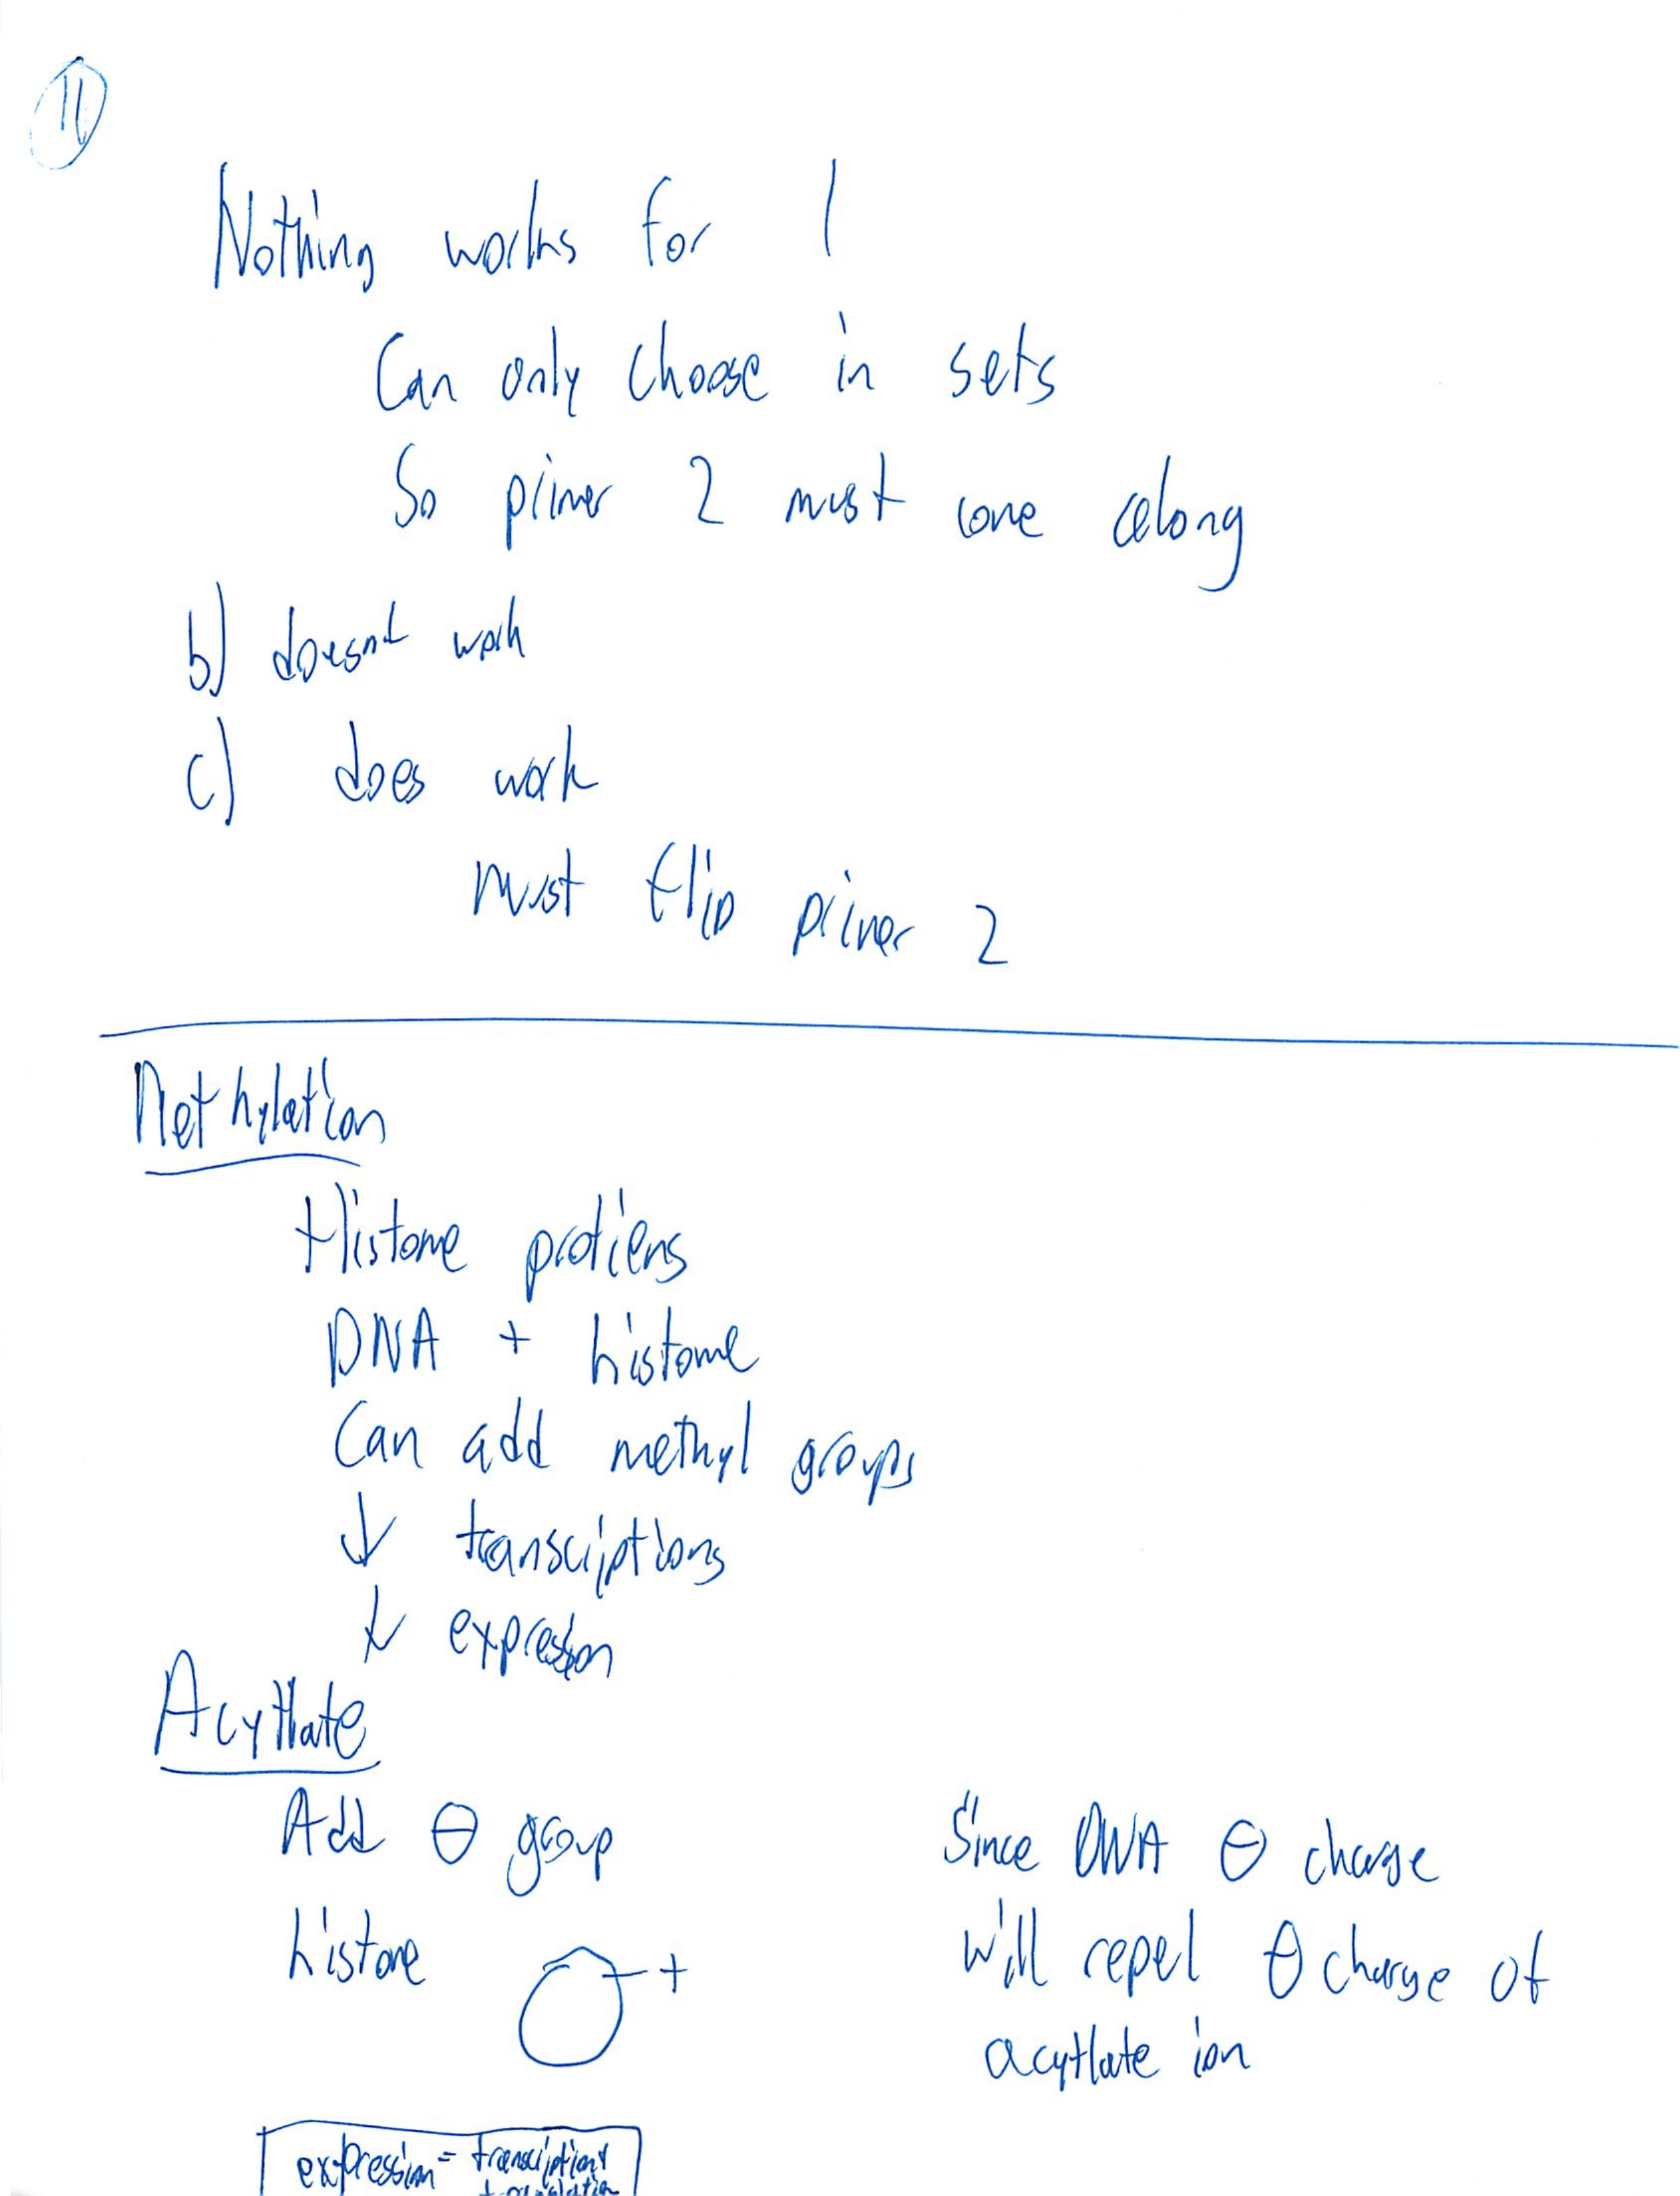 11
Nothing works for 1
Can only choose in sets
So primer 2 must come along
b) doesnt work
c) does work
must flip primer 2
Methylation
Histone protiens
DNA + histone
Can add methyl groups
↓ transciptions
↓ expression
Acytlate
Add ⊖ group
histone +
Since DNA ⊖ charge
will repel ⊖ charge of
acytlate ion
expression = transciption +
translation